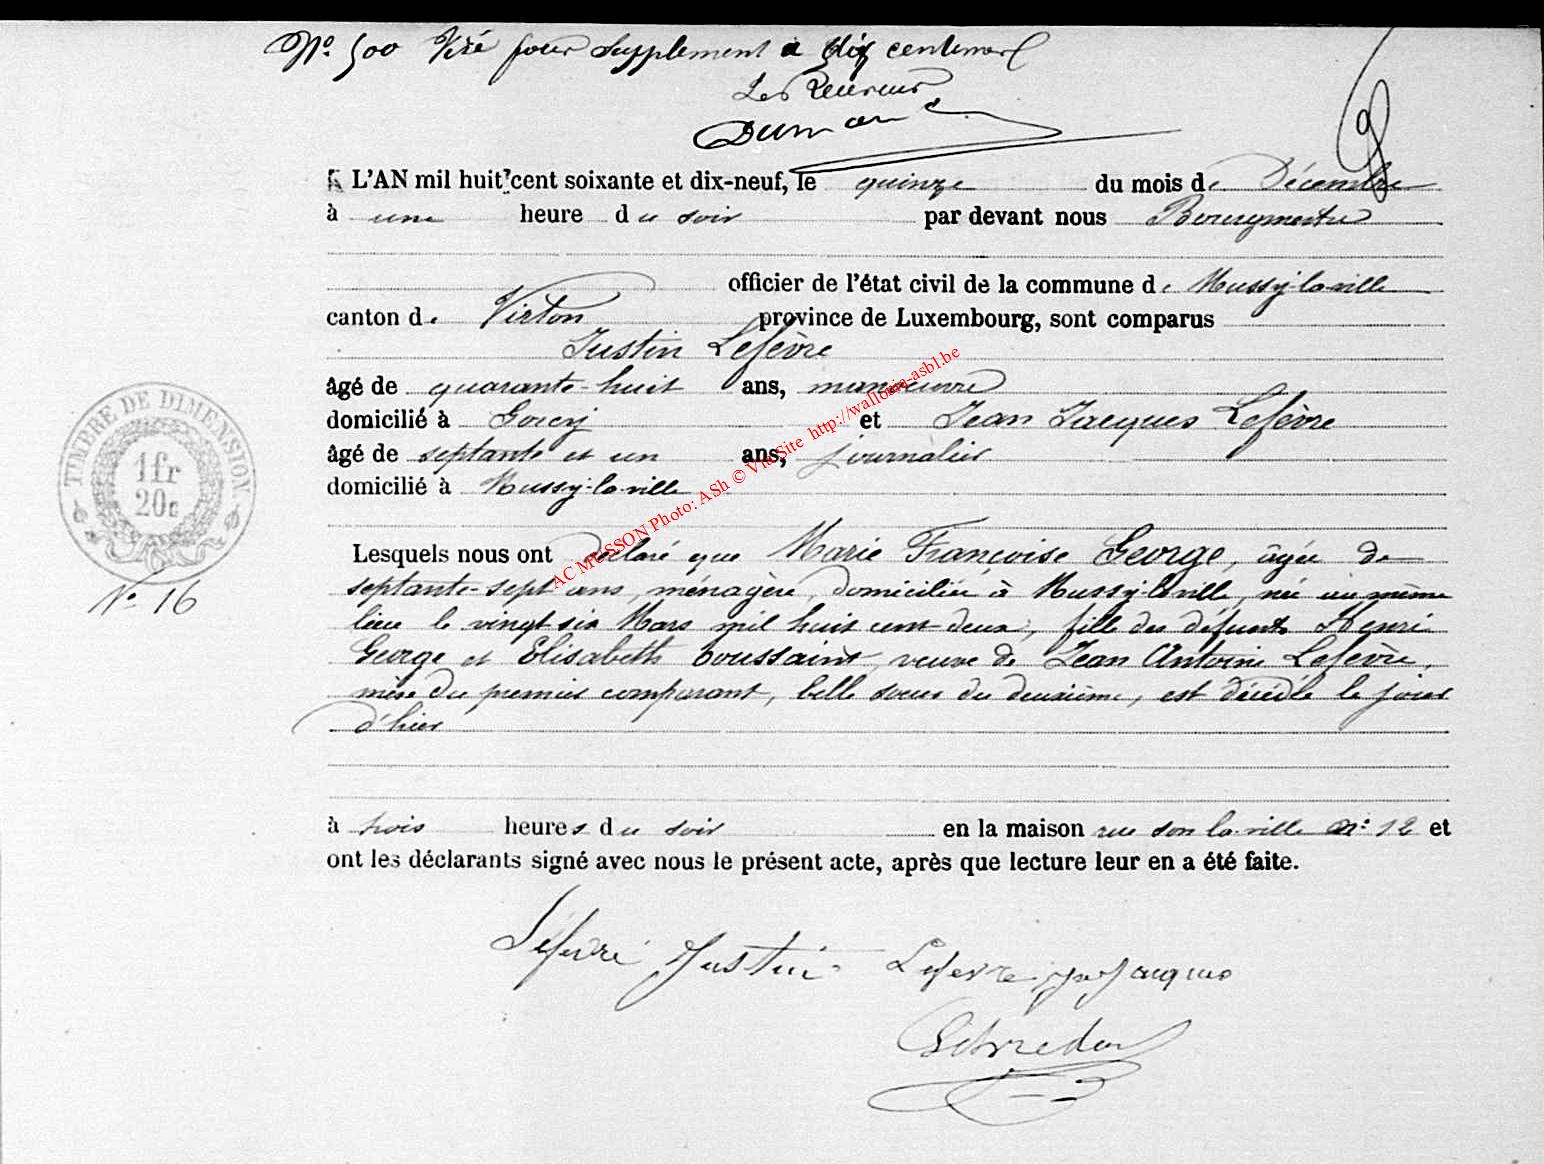 N° 500 Visé pour supplement à dix centimes
Le Receveur
Dumont
L'AN mil huit cent soixante et dix-neuf, le quinze du mois de Décembre
à une heure du soir par devant nous Bourgmestre
officier de l'état civil de la commune de Mussy-la-ville
canton de Virton province de Luxembourg, sont comparus
Justin Lefèvre
âgé de quarante-huit ans, manœuvre
domicilié à Gorcy et Jean Jacques Lefèvre
âgé de septante et un ans, journalier
domicilié à Mussy-la-ville
Lesquels nous ont déclaré que Marie Françoise George, âgée de
septante-sept ans, ménagère, domiciliée à Mussy-la-ville, née au même
lieu le vingt six Mars mil huit cent deux, fille des défunts Henri
George et Elisabeth Toussaint, veuve de Jean Antoine Lefèvre,
mère du premier comparant, belle sœur du deuxième, est décédée le jour
d'hier
à trois heures du soir en la maison rue son la ville n° 12 et
ont les déclarants signé avec nous le présent acte, après que lecture leur en a été faite.
Léfèvre Justin Lefevre Jn Jacques
TIMBRE DE DIMENSION
1fr
20c
N° 16
AC MUSSON Photo: ASh © Via Site http://wallonia-asbl.be